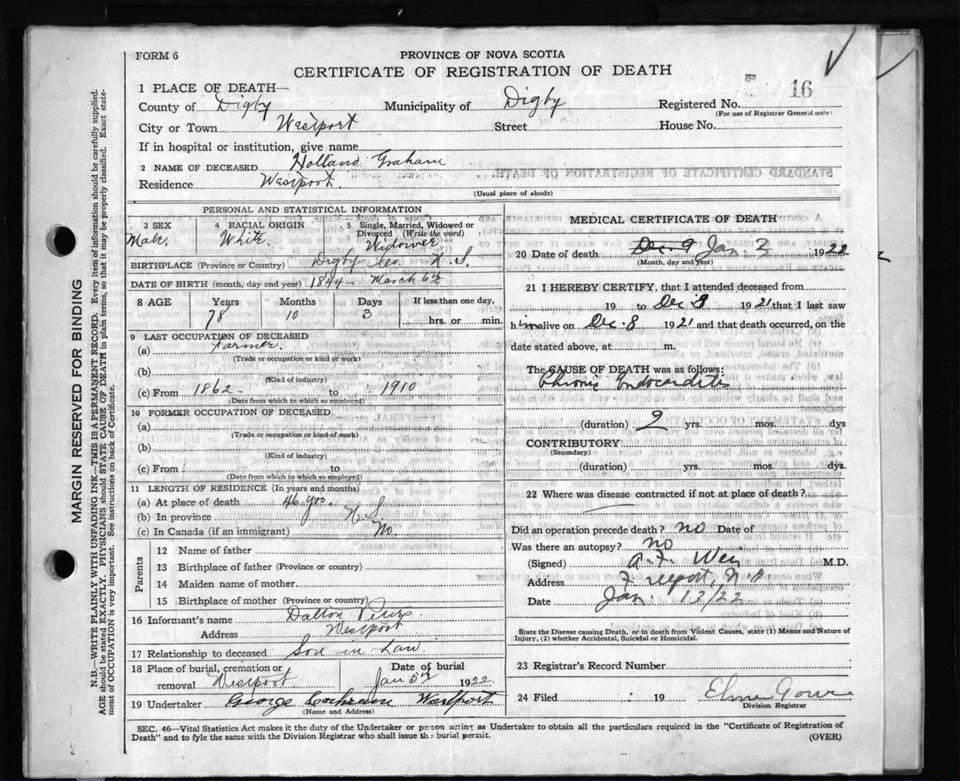 FORM 6
PROVINCE OF NOVA SCOTIA
CERTIFICATE OF REGISTRATION OF DEATH
16
1 PLACE OF DEATH—
County of Digby Municipality of Digby Registered No.
(For use of Registrar General only)
City or Town Westport Street House No.
If in hospital or institution, give name
2 NAME OF DECEASED Holland Graham
Residence Westport.
(Usual place of abode)
PERSONAL AND STATISTICAL INFORMATION
3 SEX 4 RACIAL ORIGIN 5 Single, Married, Widowed or Divorced (Write the word)
Male. White. Widower
BIRTHPLACE (Province or Country) Digby Co. N.S.
DATE OF BIRTH (month, day and year) 1844 March 6th
8 AGE Years Months Days If less than one day,
78 10 3 hrs. or min.
9 LAST OCCUPATION OF DECEASED
(a) Farmer.
(Trade or occupation or kind of work)
(b)
(Kind of industry)
(c) From 1862 to 1910
(Date from which to which so employed)
10 FORMER OCCUPATION OF DECEASED
(a)
(Trade or occupation or kind of work)
(b)
(Kind of industry)
(c) From to
(Date from which to which so employed)
11 LENGTH OF RESIDENCE (In years and months)
(a) At place of death 46 yrs.
(b) In province N.S.
(c) In Canada (if an immigrant) No.
Parents
12 Name of father
13 Birthplace of father (Province or country)
14 Maiden name of mother
15 Birthplace of mother (Province or country)
16 Informant's name Dalton
Address Westport
17 Relationship to deceased Son in Law
18 Place of burial, cremation or removal Westport Date of burial Jan 5th 1922
19 Undertaker George Westport
(Name and Address)
MEDICAL CERTIFICATE OF DEATH
20 Date of death Dec 9 Jan 3 1922
(Month, day and year)
21 I HEREBY CERTIFY, that I attended deceased from
19 to Dec 8 1921 that I last saw
him alive on Dec. 8 1921 and that death occurred, on the
date stated above, at m.
The CAUSE OF DEATH was as follows:
Chronic Endocarditis
(duration) 9 yrs. mos. dys
CONTRIBUTORY
(Secondary)
(duration) yrs. mos. dys.
22 Where was disease contracted if not at place of death?
Did an operation precede death? no Date of
Was there an autopsy? no
(Signed) A.F. Weir M.D.
Address Freeport, N.S.
Date Jan. 12/22
State the Disease causing Death, or in death from Violent Causes, state (1) Means and Nature of
Injury, (2) whether Accidental, Suicidal or Homicidal.
23 Registrar's Record Number
24 Filed 19
Division Registrar
SEC. 46—Vital Statistics Act makes it the duty of the Undertaker or person acting as Undertaker to obtain all the particulars required in the "Certificate of Registration of
Death" and to fyle the same with the Division Registrar who shall issue the burial permit.
(OVER)
MARGIN RESERVED FOR BINDING
N.B.—WRITE PLAINLY WITH UNFADING INK—THIS IS A PERMANENT RECORD. Every item of information should be carefully supplied.
AGE should be stated EXACTLY. PHYSICIANS should STATE CAUSE OF DEATH in plain terms, so that it may be properly classified. Exact state-
ment of OCCUPATION is very important. See instructions on back of Certificate.